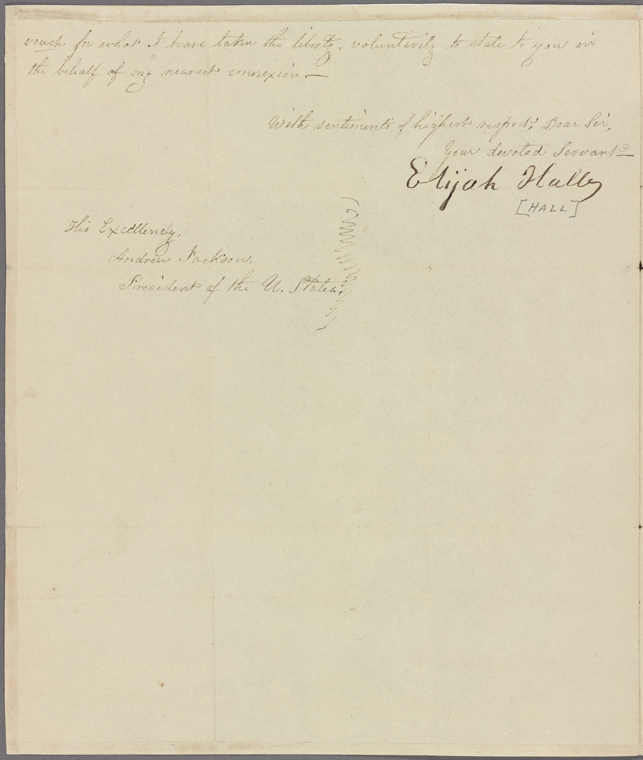 vouch for what I have taken the liberty, voluntarily to state to you in
the behalf of my nearest connexion —
With sentiments of highest respect, Dear Sir,
Your devoted Servant
Elijah Hall
[HALL]
His Excellency,
Andrew Jackson,
President of the U. States,